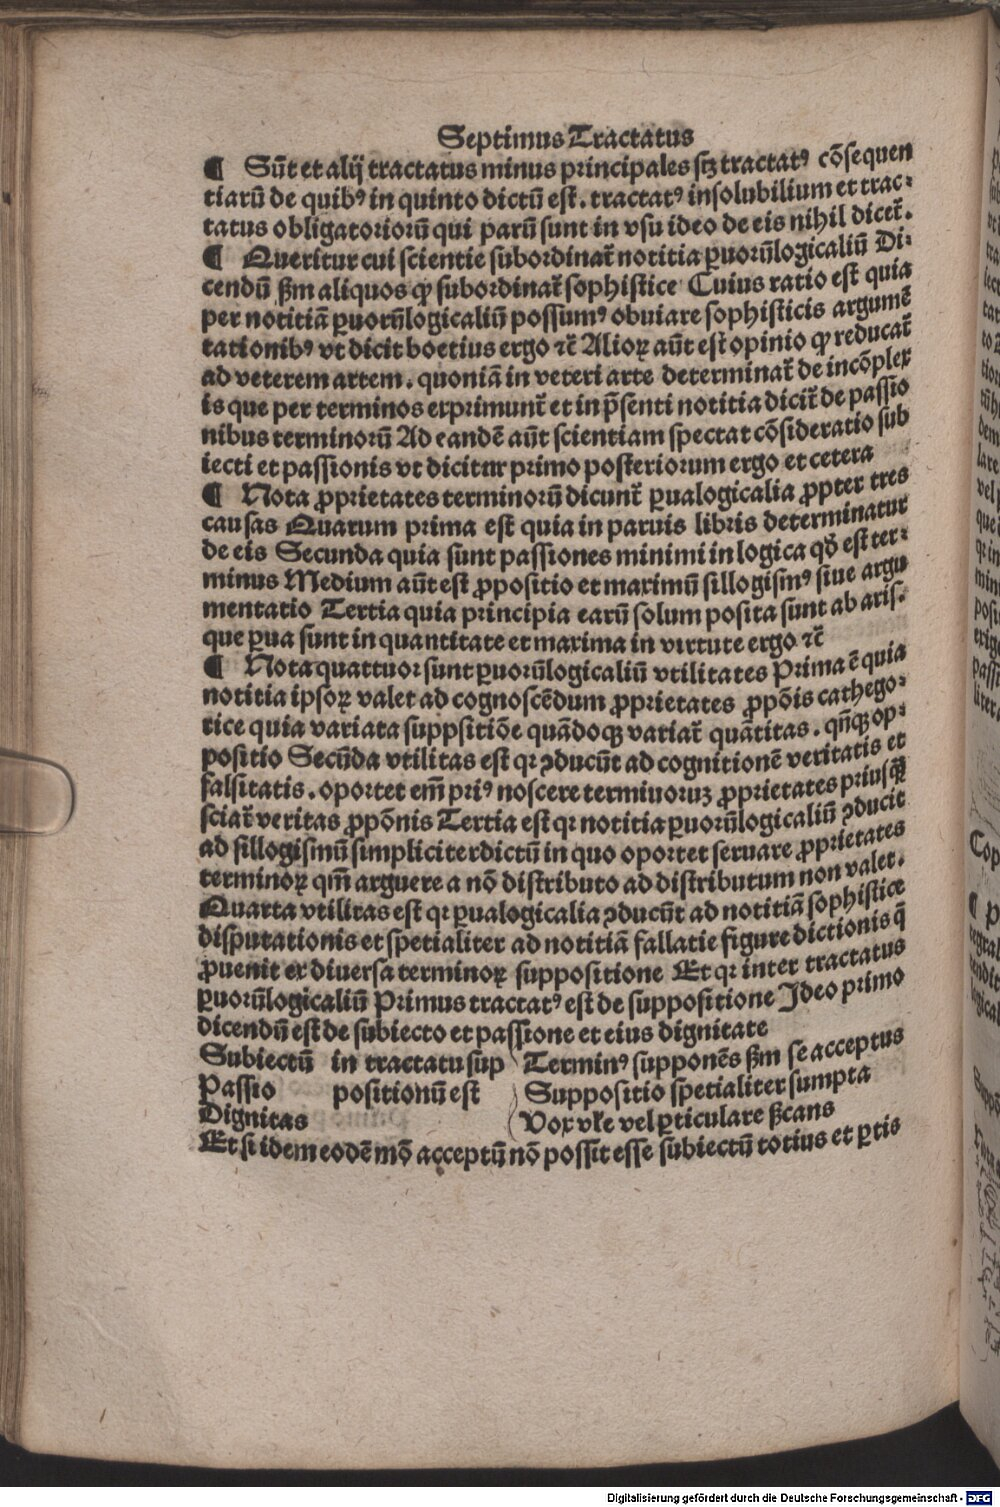 Septimus Tractatus
¶ Sūt et alij tractatus minus principales sꝫ tractatꝰ cōsequen
tiarū de quibꝰ in quinto dictū est. tractatꝰ insolubilium et trac-
tatus obligatoriorū qui parū sunt in vsu ideo de eis nihil dicet̄.
¶ Queritur cui scientie subordinat̄ notitia ꝑuorūlogicaliū Di-
cendū ẜm aliquos ꝙ subordinat̄ sophistice Cuius ratio est quia
per notitiā ꝑuorūlogicaliū possumꝰ obuiare sophisticis argumē
tationibꝰ vt dicit boetius ergo ⁊c̄ Alioꝝ aūt est opinio ꝙ reducat̄
ad veterem artem. quoniā in veteri arte determinat̄ de incōplex
is que per terminos exprimunt̄ et in p̄senti notitia dicit̄ de passio
nibus terminorū Ad eandē aūt scientiam spectat cōsideratio sub
iecti et passionis vt dicitur primo posteriorum ergo et cetera
¶ Nota ꝓprietates terminorū dicunt̄ ꝑualogicalia ꝓpter tres
causas Quarum prima est quia in paruis libris determinatur
de eis Secunda quia sunt passiones minimi in logica qd̄ est ter-
minus Medium aūt est ꝓpositio et maximū sillogismꝰ siue argu
mentatio Tertia quia principia earū solum posita sunt ab aris.
que ꝑua sunt in quantitate et maxima in virtute ergo ⁊c̄
¶ Nota quattuor sunt ꝑuorūlogicaliū vtilitates Prima ē quia
notitia ipsoꝝ valet ad cognoscēdum ꝓprietates ꝓpōis cathego-
rice quia variata suppsitiōe quādoqꝫ variat̄ quātitas. qn̄qꝫ op-
positio Secūda vtilitas est qꝛ ꝯducūt ad cognitionē veritatis et
falsitatis. oportet em̄ priꝰ noscere terminoruꝫ ꝓprietates priusq̄
sciat̄ veritas ꝓpōnis Tertia est qꝛ notitia ꝑuorūlogicaliū ꝯducit
ad sillogismū simpliciterdictū in quo oportet seruare ꝓprietates
terminoꝝ qm̄ arguere a nō distributo ad distributum non valet.
Quarta vtilitas est qꝛ ꝑualogicalia ꝯducūt ad notitiā sophistice
disputationis et spetialiter ad notitiā fallatie figure dictionis q̄
ꝓuenit ex diuersa terminoꝝ suppositione Et qꝛ inter tractatus
ꝑuorūlogicaliū Primus tractatꝰ est de suppositione Ideo primo
dicendū est de subiecto et passione et eius dignitate
Subiectū in tractatu sup Terminꝰ supponēs ẜm se acceptus
Passio positionū est Suppositio spetialiter sumpta
Dignitas Vox vl̄e vel ꝑticulare ẜcans
Et si idem eodē mō acceptū nō possit esse subiectū totius et ꝑtis
Digitalisierung gefördert durch die Deutsche Forschungsgemeinschaft - DFG